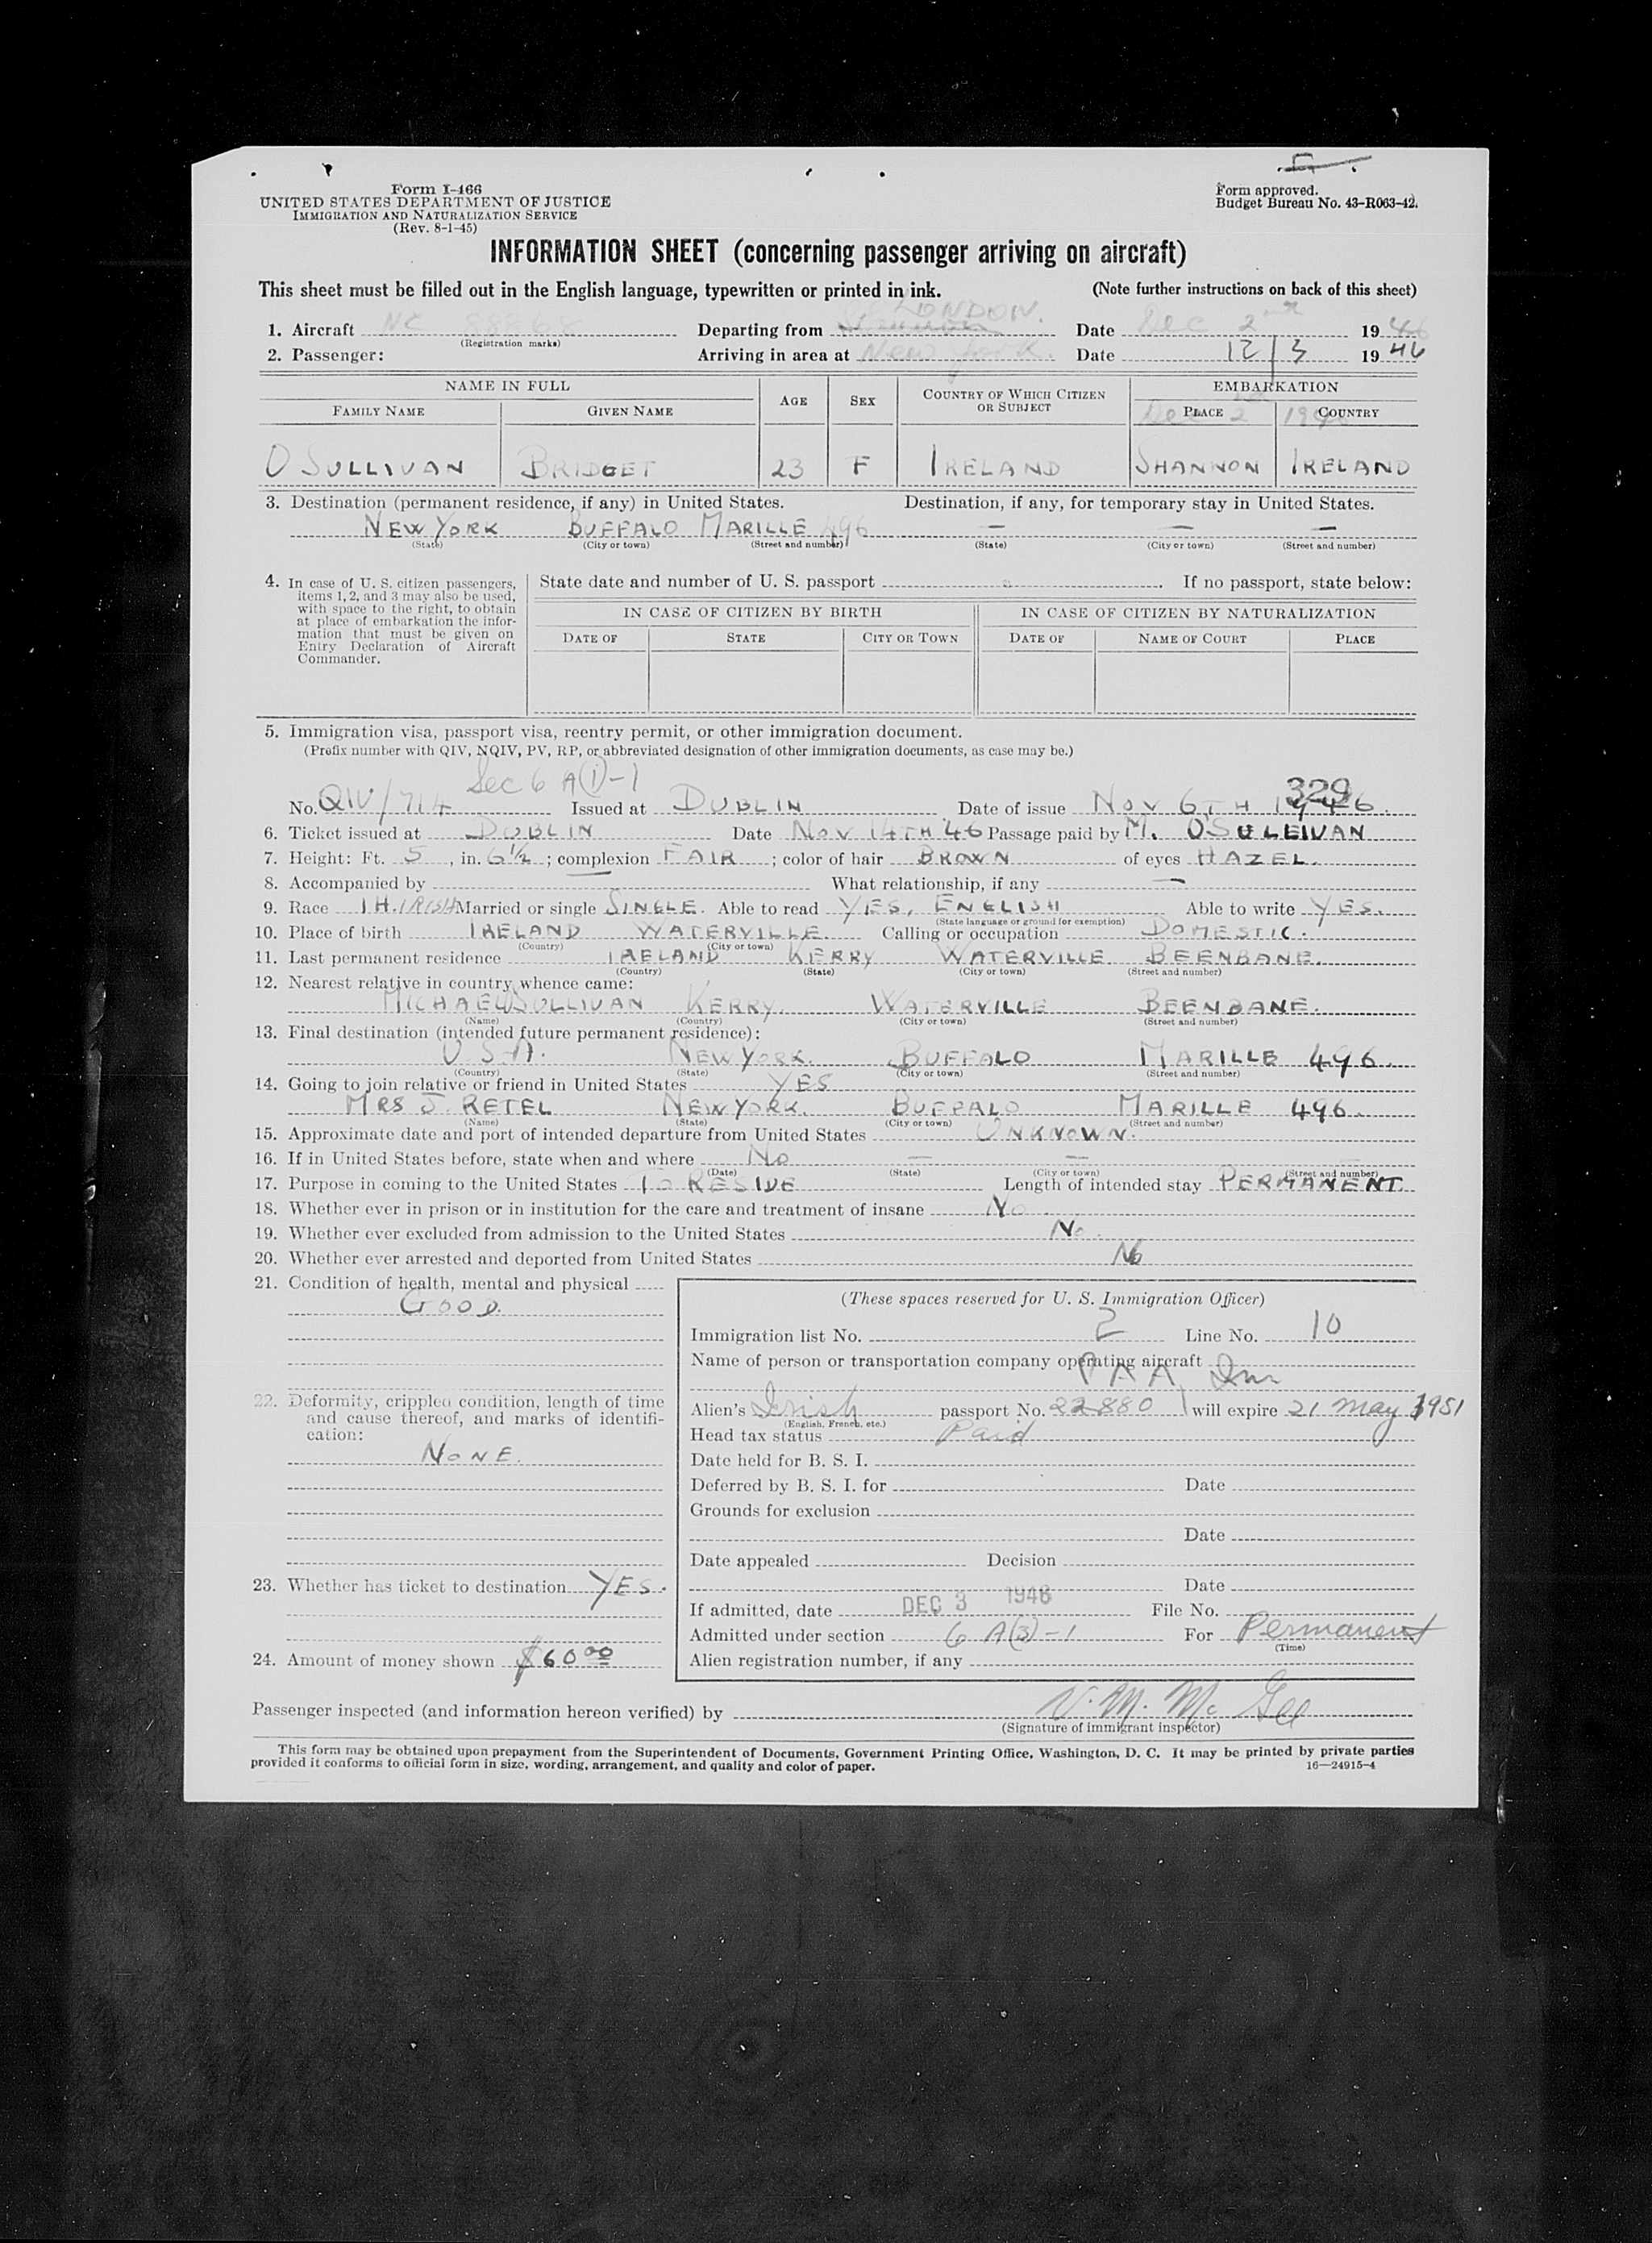 Form I-466
UNITED STATES DEPARTMENT OF JUSTICE
IMMIGRATION AND NATURALIZATION SERVICE
(Rev. 8-1-45)
Form approved.
Budget Bureau No. 43-R063-42.
INFORMATION SHEET (concerning passenger arriving on aircraft)
This sheet must be filled out in the English language, typewritten or printed in ink. (Note further instructions on back of this sheet)
1. Aircraft NC 88868 Departing from LONDON. Date Dec 2nd 1946
(Registration marks)
2. Passenger: Arriving in area at New York. Date 12/3 1946
NAME IN FULL AGE SEX COUNTRY OF WHICH CITIZEN OR SUBJECT EMBARKATION
FAMILY NAME GIVEN NAME PLACE COUNTRY
Dec 2nd 1946
O SULLIVAN BRIDGET 23 F IRELAND SHANNON IRELAND
3. Destination (permanent residence, if any) in United States. Destination, if any, for temporary stay in United States.
NEW YORK BUFFALO MARILLE 496 — — —
(State) (City or town) (Street and number) (State) (City or town) (Street and number)
4. In case of U. S. citizen passengers, items 1, 2, and 3 may also be used, with space to the right, to obtain at place of embarkation the information that must be given on Entry Declaration of Aircraft Commander.
State date and number of U. S. passport If no passport, state below:
IN CASE OF CITIZEN BY BIRTH IN CASE OF CITIZEN BY NATURALIZATION
DATE OF STATE CITY OR TOWN DATE OF NAME OF COURT PLACE
5. Immigration visa, passport visa, reentry permit, or other immigration document.
(Prefix number with QIV, NQIV, PV, RP, or abbreviated designation of other immigration documents, as case may be.)
Sec 6 A(1)-1 329
No. QIV/714 Issued at DUBLIN Date of issue NOV 6TH 1946.
6. Ticket issued at DUBLIN Date NOV 14TH '46 Passage paid by M. O'SULLIVAN
7. Height: Ft. 5, in. 6½; complexion FAIR; color of hair BROWN of eyes HAZEL.
8. Accompanied by — What relationship, if any —
9. Race IRISH Married or single SINGLE. Able to read YES, ENGLISH Able to write YES.
(State language or ground for exemption)
10. Place of birth IRELAND WATERVILLE. Calling or occupation DOMESTIC.
(Country) (City or town)
11. Last permanent residence IRELAND KERRY WATERVILLE BEENBANE.
(Country) (State) (City or town) (Street and number)
12. Nearest relative in country whence came:
MICHAEL O'SULLIVAN KERRY. WATERVILLE BEENBANE.
(Name) (Country) (City or town) (Street and number)
13. Final destination (intended future permanent residence):
U.S.A. NEW YORK. BUFFALO MARILLE 496.
(Country) (State) (City or town) (Street and number)
14. Going to join relative or friend in United States YES
MRS J. RETEL NEW YORK. BUFFALO MARILLE 496.
(Name) (State) (City or town) (Street and number)
15. Approximate date and port of intended departure from United States UNKNOWN.
16. If in United States before, state when and where No — —
(Date) (State) (City or town) (Street and number)
17. Purpose in coming to the United States TO RESIDE Length of intended stay PERMANENT
18. Whether ever in prison or in institution for the care and treatment of insane No
19. Whether ever excluded from admission to the United States No.
20. Whether ever arrested and deported from United States No
21. Condition of health, mental and physical
GOOD.
22. Deformity, crippled condition, length of time and cause thereof, and marks of identification:
NONE.
23. Whether has ticket to destination YES.
24. Amount of money shown $60.00
(These spaces reserved for U. S. Immigration Officer)
Immigration list No. 2 Line No. 10
Name of person or transportation company operating aircraft
PAA
Alien's Irish passport No. 22880 will expire 21 May 1951
(English, French, etc.)
Head tax status Paid
Date held for B. S. I.
Deferred by B. S. I. for Date
Grounds for exclusion
Date
Date appealed Decision
Date
If admitted, date DEC 3 1946 File No.
Admitted under section 6 A(3)-1 For Permanent
(Time)
Alien registration number, if any
Passenger inspected (and information hereon verified) by V. M. McGee
(Signature of immigrant inspector)
This form may be obtained upon prepayment from the Superintendent of Documents, Government Printing Office, Washington, D. C. It may be printed by private parties
provided it conforms to official form in size, wording, arrangement, and quality and color of paper. 16—24915-4